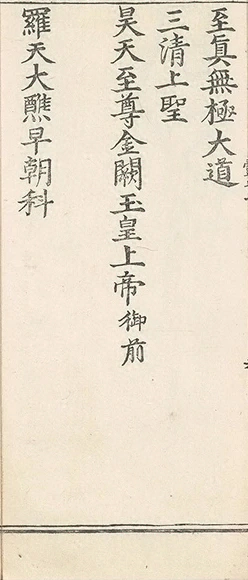 至真無極大道
三清上聖
昊天至尊金闕玉皇上帝御前
羅天大醮早朝科